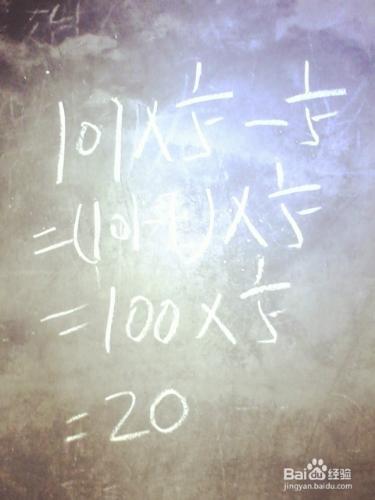 101×1/5-1/5
=(101-1)×1/5
=100×1/5
=20
Bai du 经验
jingyan.baidu.com